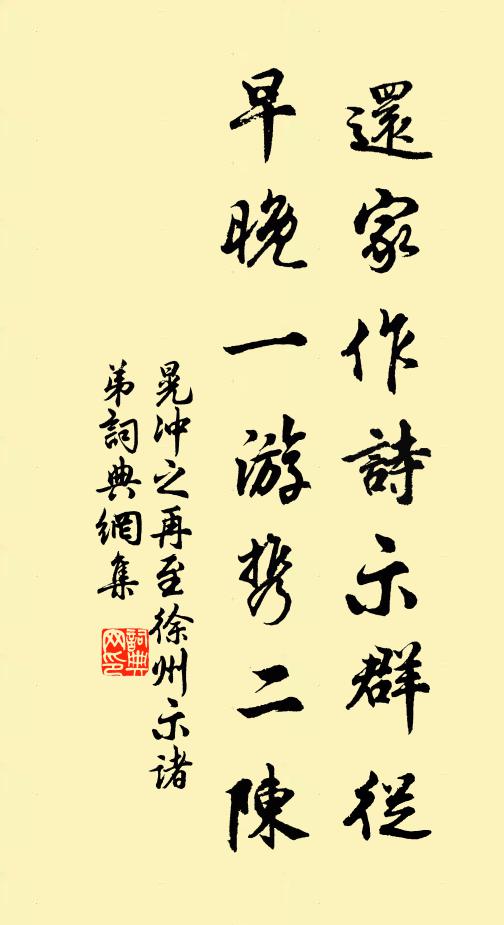 還家作詩示群從
早晚一游携二陳
晁沖之再至徐州示諸
弟詞典網集
詞典网印